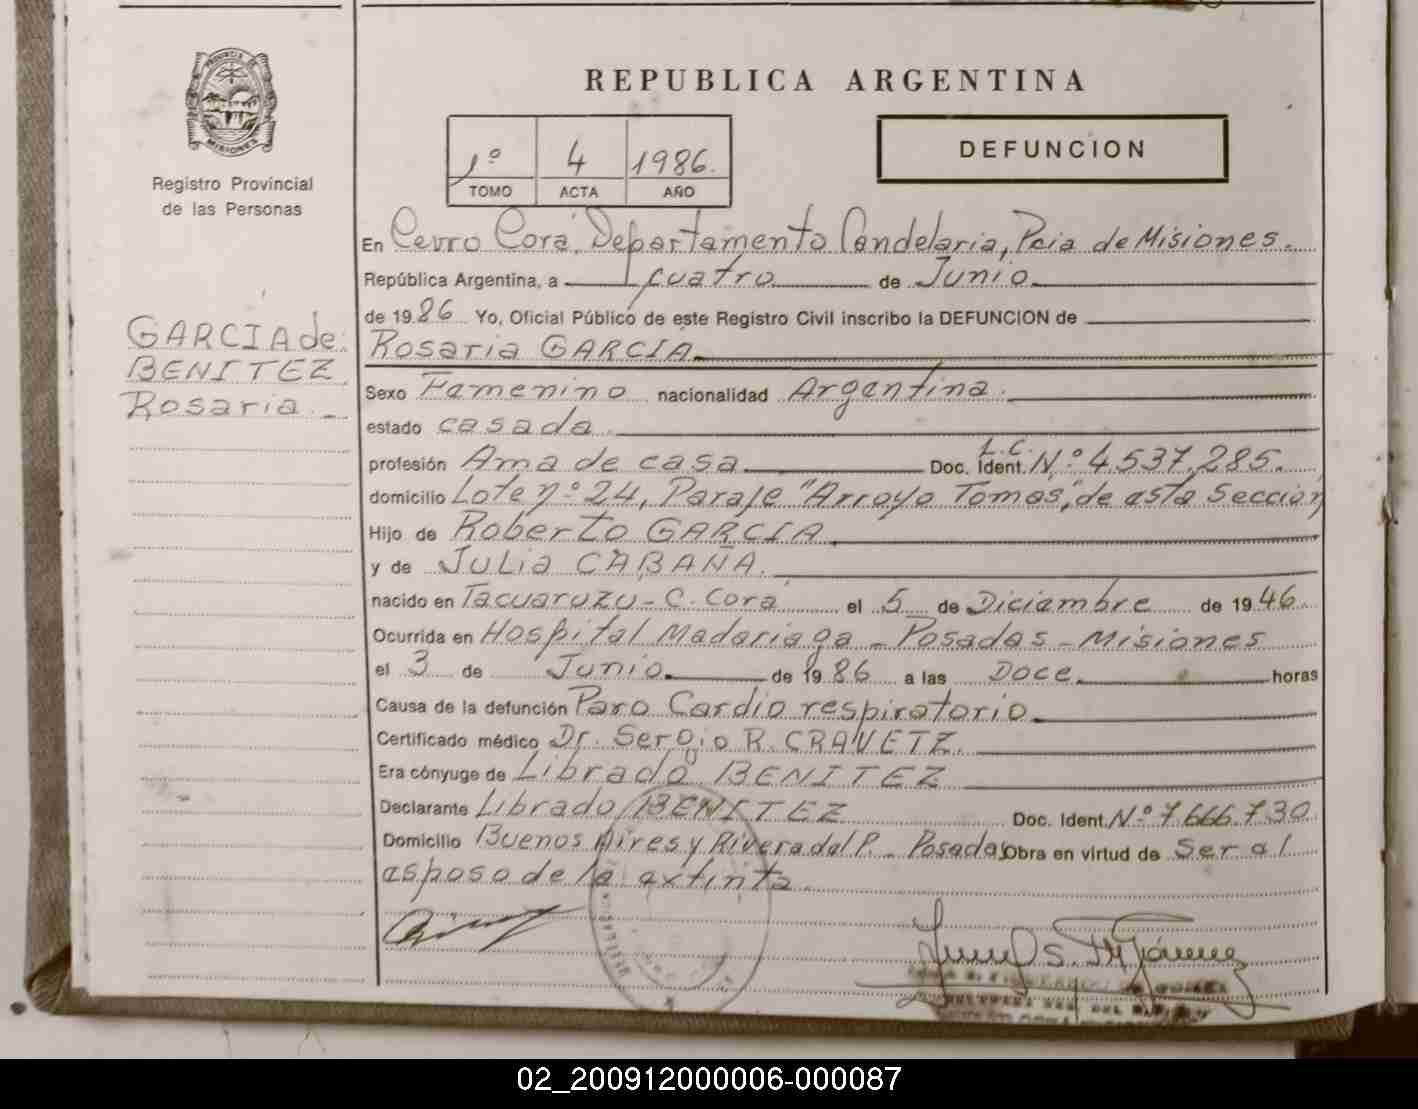 PROVINCIA DE
MISIONES
Registro Provincial
de las Personas
GARCIA de
BENITEZ
Rosaria.
REPUBLICA ARGENTINA
1º 4 1986.
TOMO ACTA AÑO
DEFUNCION
En Cerro Corá, Departamento Candelaria, Pcia de Misiones.
República Argentina, a cuatro de Junio
de 1986 Yo, Oficial Público de este Registro Civil inscribo la DEFUNCION de
Rosaria GARCIA
Sexo Femenino nacionalidad Argentina.
estado casada.
L.C.
profesión Ama de casa Doc. Ident. N.º 4.537.285.
domicilio Lote nº 24, Paraje "Arroyo Tomas", de esta Sección
Hijo de Roberto GARCIA
y de Julia CABAÑA.
nacido en Tacuaruzu - C. Corá el 5 de Diciembre de 1946.
Ocurrida en Hospital Madariaga - Posadas - Misiones
el 3 de Junio de 1986 a las Doce horas
Causa de la defunción Paro Cardio respiratorio
Certificado médico Dr. Sergio R. CRAVETZ.
Era cónyuge de Librado BENITEZ
Declarante Librado BENITEZ Doc. Ident. N.º 7.666.730.
Domicilio Buenos Aires y Rivera del P. - Posadas Obra en virtud de Ser el
esposo de la extinta.
02_200912000006-000087